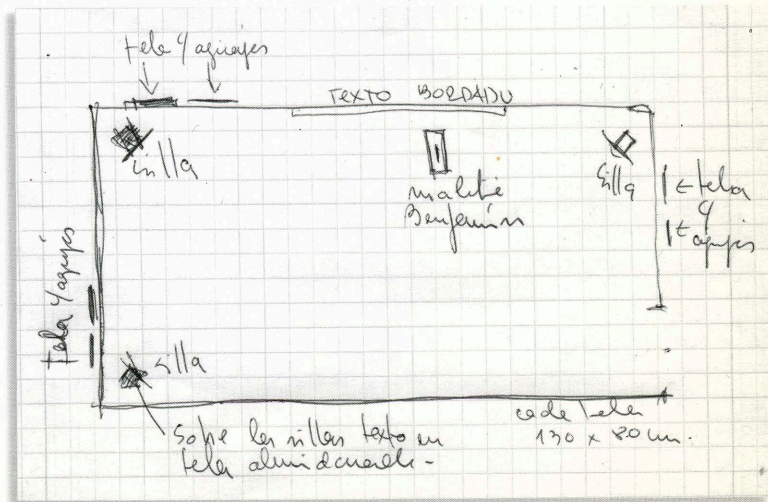 tela y agujas
TEXTO BORDADO
silla
silla
maletín
Benjamín
tela
y
agujas
tela y agujas
silla
Sobre las sillas texto en
tela almidonada-
cada tela
130 x 80 cm.